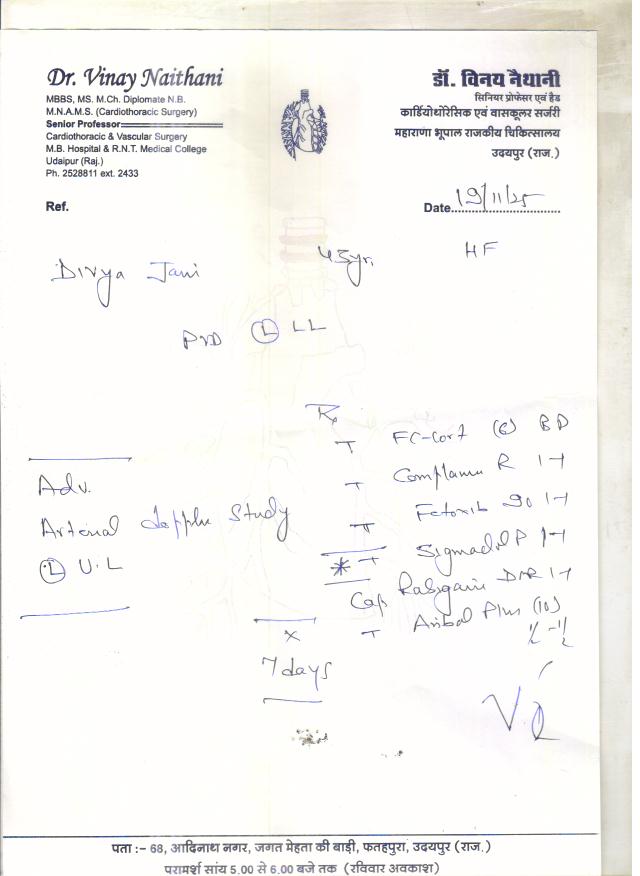 Dr. Vinay Naithani
MBBS, MS. M.Ch. Diplomate N.B.
M.N.A.M.S. (Cardiothoracic Surgery)
Senior Professor
Cardiothoracic & Vascular Surgery
M.B. Hospital & R.N.T. Medical College
Udaipur (Raj.)
Ph. 2528811 ext. 2433
डॉ. विनय नैथानी
सिनियर प्रोफेसर एवं हैड
कार्डियोथोरेसिक एवं वासकूलर सर्जरी
महाराणा भूपाल राजकीय चिकित्सालय
उदयपुर (राज.)
Ref.
Date 19/11/25
Divya Jani 45yr. HF
PVD (L) LL
Rx
T FC-Cort (6) BD
T Complamin R 1-1
T 90 1-1
* T P 1-1
Cap DSR 1-1
T Plus (10)
½-½
Adv.
Arterial Study
(L) U.L
x
7 days
पता :- 68, आदिनाथ नगर, जगत मेहता की बाड़ी, फतहपुरा, उदयपुर (राज.)
परामर्श सांय 5.00 से 6.00 बजे तक (रविवार अवकाश)